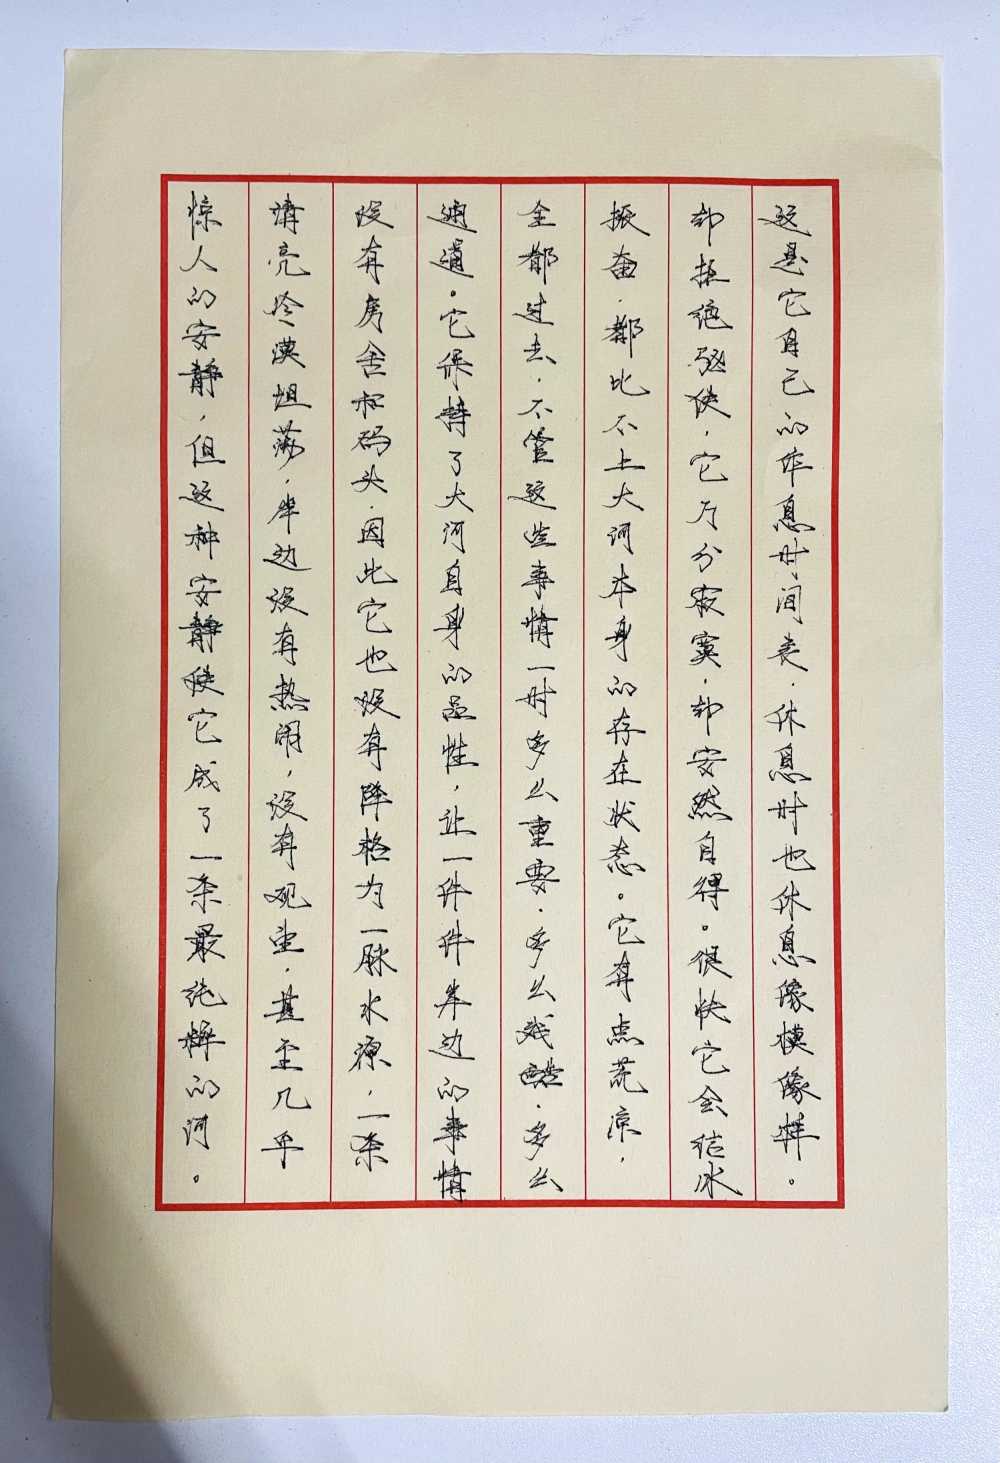 这是它自己的作息时间表，休息时也休息像模像样。
却拒绝驱使，它万分寂寞，却安然自得。很快它会结冰
振奋，都比不上大河本身的存在状态。它有点荒凉，
全都过去，不管这些事情一时多么重要，多么残酷，多么
通道。它保持了大河自身的品性，让一件件岸边的事情
没有房舍和码头，因此它也没有降格为一脉水源，一条
清亮冷漠坦荡，岸边没有热闹，没有观望，甚至几乎
惊人的安静，但这种安静使它成了一条最纯粹的河。